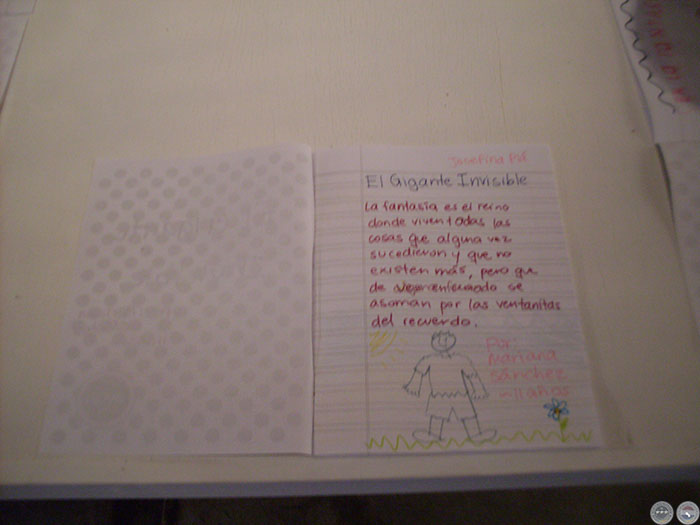 Josefina Plá
El Gigante Invisible
La fantasía es el reino
donde viven todas las
cosas que alguna vez
sucedieron y que no
existen más, pero que
de se
asoman por las ventanitas
del recuerdo.
Por:
Mariana
Sánchez
11 años